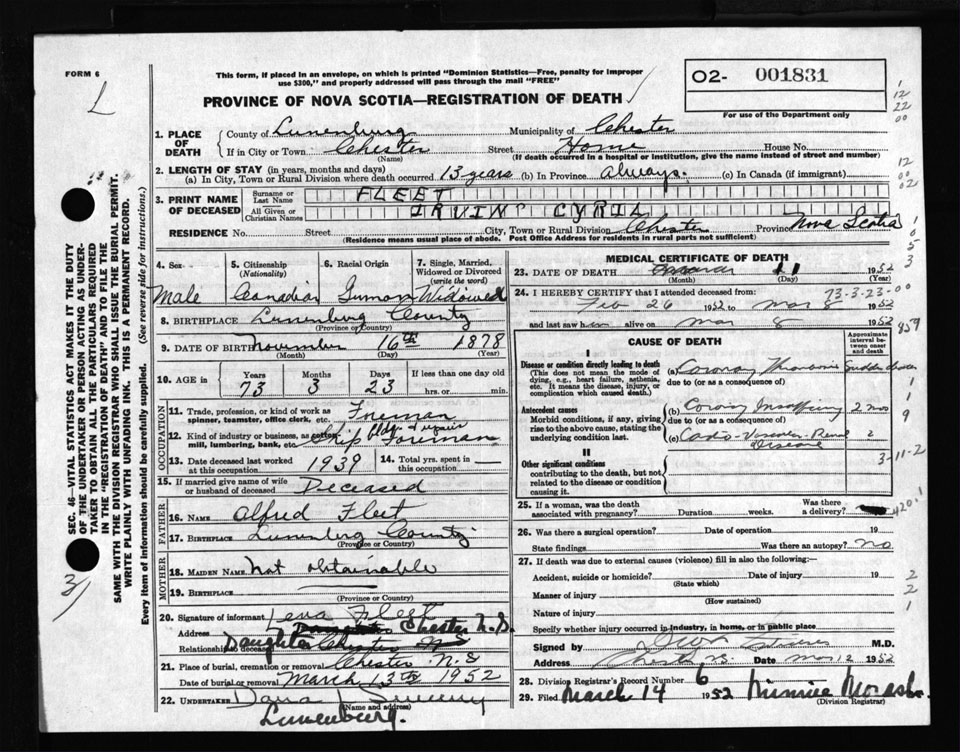 FORM 6
This form, if placed in an envelope, on which is printed "Dominion Statistics—Free, penalty for improper
use $300," and properly addressed will pass through the mail "FREE"
O2- 001831
For use of the Department only
PROVINCE OF NOVA SCOTIA—REGISTRATION OF DEATH
1. PLACE OF DEATH
County of Lunenburg Municipality of Chester
If in City or Town Chester Street Home House No.
(Name) (If death occurred in a hospital or institution, give the name instead of street and number)
2. LENGTH OF STAY (in years, months and days)
(a) In City, Town or Rural Division where death occurred 13 years (b) In Province always. (c) In Canada (if immigrant)
3. PRINT NAME OF DECEASED
Surname or Last Name FLEET
All Given or Christian Names CYRIL
RESIDENCE No. Street City, Town or Rural Division Chester Province Nova Scotia
(Residence means usual place of abode. Post Office Address for residents in rural parts not sufficient)
4. Sex Male
5. Citizenship (Nationality) Canadian
6. Racial Origin
7. Single, Married, Widowed or Divorced (write the word) Widowed
8. BIRTHPLACE Lunenburg County
(Province or Country)
9. DATE OF BIRTH November 16th 1878
(Month) (Day) (Year)
10. AGE in Years 73 Months 3 Days 23 If less than one day old
hrs. or min.
OCCUPATION
11. Trade, profession, or kind of work as spinner, teamster, office clerk, etc. Foreman
12. Kind of industry or business, as cotton mill, lumbering, bank, etc. Ship Bldg. & repair Foreman
13. Date deceased last worked at this occupation 1939
14. Total yrs. spent in this occupation
15. If married give name of wife or husband of deceased Deceased
FATHER
16. NAME Alfred Fleet
17. BIRTHPLACE Lunenburg County
(Province or Country)
MOTHER
18. MAIDEN NAME not obtainable
19. BIRTHPLACE
(Province or Country)
20. Signature of informant Lena Fleet
Address Chester N.S.
Relationship to deceased Daughter Chester NS
21. Place of burial, cremation or removal Chester N.S
Date of burial or removal March 13th 1952
22. UNDERTAKER Dana Sweeny
(Name and address)
Lunenburg.
MEDICAL CERTIFICATE OF DEATH
23. DATE OF DEATH 11 1952
(Month) (Day) (Year)
24. I HEREBY CERTIFY that I attended deceased from: 73-3-23-00
Feb 26 1952 to Mar 8 1952
and last saw him alive on Mar 8 1952
859
CAUSE OF DEATH
Approximate interval between onset and death
I
Disease or condition directly leading to death
(This does not mean the mode of dying, e.g., heart failure, asthenia, etc. It means the disease, injury, or complication which caused death.)
(a) Coronary Thrombosis
due to (or as a consequence of)
Antecedent causes
Morbid conditions, if any, giving rise to the above cause, stating the underlying condition last.
(b) Coronary Insufficiency 2 mos
due to (or as a consequence of)
(c) Cardio-Vascular-Renal Disease 2
3-11-2
II
Other significant conditions
contributing to the death, but not related to the disease or condition causing it.
25. If a woman, was the death associated with pregnancy? Duration weeks. Was there a delivery?
420.1
26. Was there a surgical operation? Date of operation 19
State findings Was there an autopsy? No
27. If death was due to external causes (violence) fill in also the following:—
Accident, suicide or homicide? Date of injury 19
(State which)
Manner of injury
(How sustained)
Nature of injury
Specify whether injury occurred in industry, in home, or in public place
Signed by M.D.
Address Chester N.S. Date Mar 12 1952
28. Division Registrar's Record Number 6
29. Filed March 14 1952 Minnie Morash
(Division Registrar)
SEC. 46—VITAL STATISTICS ACT MAKES IT THE DUTY
OF THE UNDERTAKER OR PERSON ACTING AS UNDER-
TAKER TO OBTAIN ALL THE PARTICULARS REQUIRED
IN THE "REGISTRATION OF DEATH" AND TO FILE THE
SAME WITH THE DIVISION REGISTRAR WHO SHALL ISSUE THE BURIAL PERMIT.
WRITE PLAINLY WITH UNFADING INK. THIS IS A PERMANENT RECORD.
Every item of information should be carefully supplied. (See reverse side for instructions.)